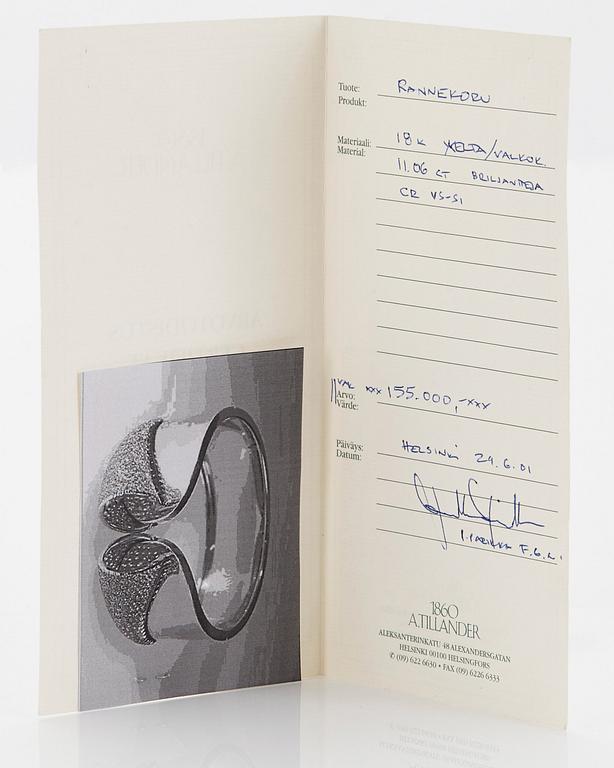 Tuote: RANNEKORU
Produkt:
Materiaali: 18K KELTA/VALKOK.
Material: 11.06 CT BRILJANTTEJA
CR VS-SI
VAK xxx 155.000,-xxx
Arvo:
Värde:
Päiväys: HELSINKI 29.6.01
Datum:
F.G.A.
1860
A.TILLANDER
ALEKSANTERINKATU 48 ALEXANDERSGATAN
HELSINKI 00100 HELSINGFORS
✆ (09) 622 6630 • FAX (09) 6226 6333